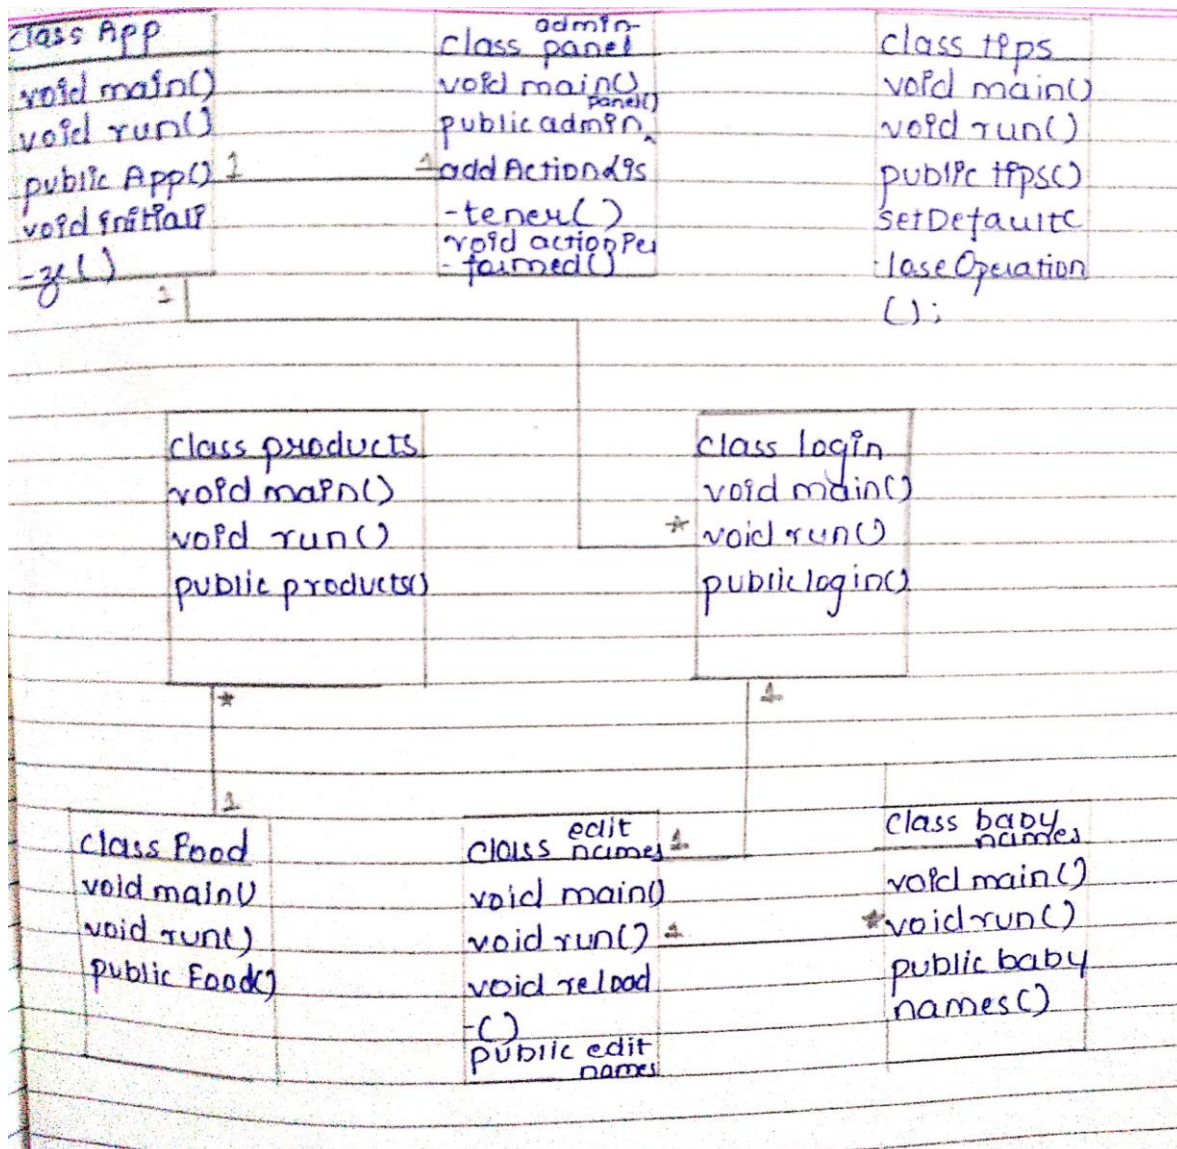 class App
void main()
void run()
public App() 1
void initiali
-ze()
1
admin-
class panel
void main()
panel()
public admin^
1 addActionLis
-tener()
void actionPer
-formed()
class tips
void main()
void run()
public tips()
setDefaultC
-loseOperation
();
class products
void main()
void run()
public products()
*
class login
void main()
* void run()
public login()
1
1
class Food
void main()
void run()
public Food()
edit
class names 1
void main()
void run() 1
void reload
-()
public edit
names
class baby
names
void main()
* void run()
public baby
names()